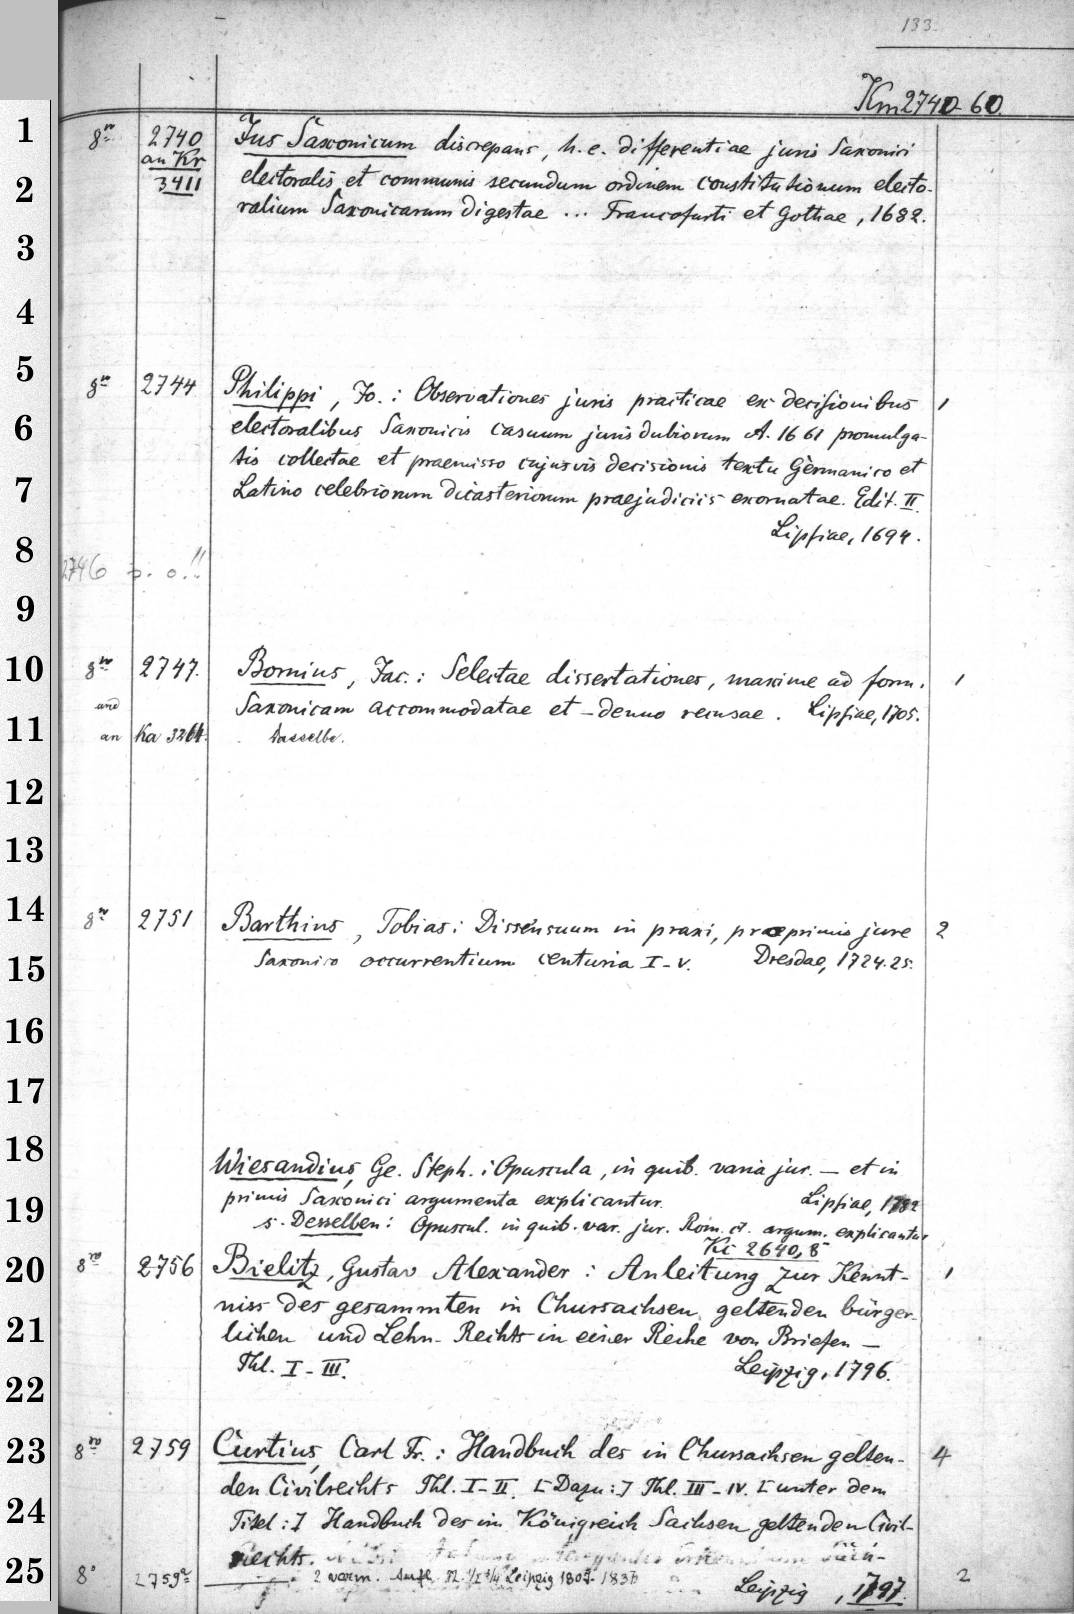 133.
Km 2740-60.
1
8vo 2740 Jus Saxonicum discrepans, h. e. differentiae juris Saxonici
an Kr
2 3411 electoralis et communis secundum ordinem constitutionum electo-
ralium Saxonicarum digestae ... Francofurti et Gothae, 1682.
3
4
5
8vo 2744 Philippi, Jo.: Observationes juris practicae ex decisionibus 1
6 electoralibus Saxonicis casuum juris dubiorum A. 1661 promulga-
tis collectae et praemisso cujusvis decisionis textu Germanico et
7 Latino celebriorum dicasteriorum praejudiciis exornatae. Edit. II.
Lipsiae, 1694.
8
2746 p. o.!!
9
10 8vo 2747. Bornius, Jac.: Selectae dissertationes, maxime ad form. 1
und Saxonicam accommodatae et - denuo recusae. Lipsiae, 1705.
11 an Ka 3264. Dasselbe.
12
13
14 8vo 2751 Barthius, Tobias: Dissensuum in praxi, praeprimis jure 2
15 Saxonico occurrentium centuria I-V. Dresdae, 1724.25.
16
17
18
Wiesandius, Ge. Steph.: Opuscula, in quib. varia jur. — et in
19 primis Saxonici argumenta explicantur. Lipsiae, 1782
s. Desselben: Opuscul. in quib. var. jur. Rom. et. argum. explicantur
Kc 2640, 8
20 8vo 2756 Bielitz, Gustav Alexander: Anleitung zur Kennt- 1
niss des gesammten in Chursachsen geltenden bürger-
21 lichen und Lehn-Rechts in einer Reihe von Briefen —
Thl. I-III. Leipzig, 1796.
22
23 8vo 2759 Curtius, Carl Fr.: Handbuch des in Chursachsen gelten- 4
den Civilrechts Thl. I-II. [Dazu:] Thl. III-IV. [unter dem
24 Titel:] Handbuch des im Königreich Sachsen geltenden Civil-
Rechts.
25 8° 2759a 2 verm. Aufl. Leipzig 1807-1837 2
Leipzig, 1797.